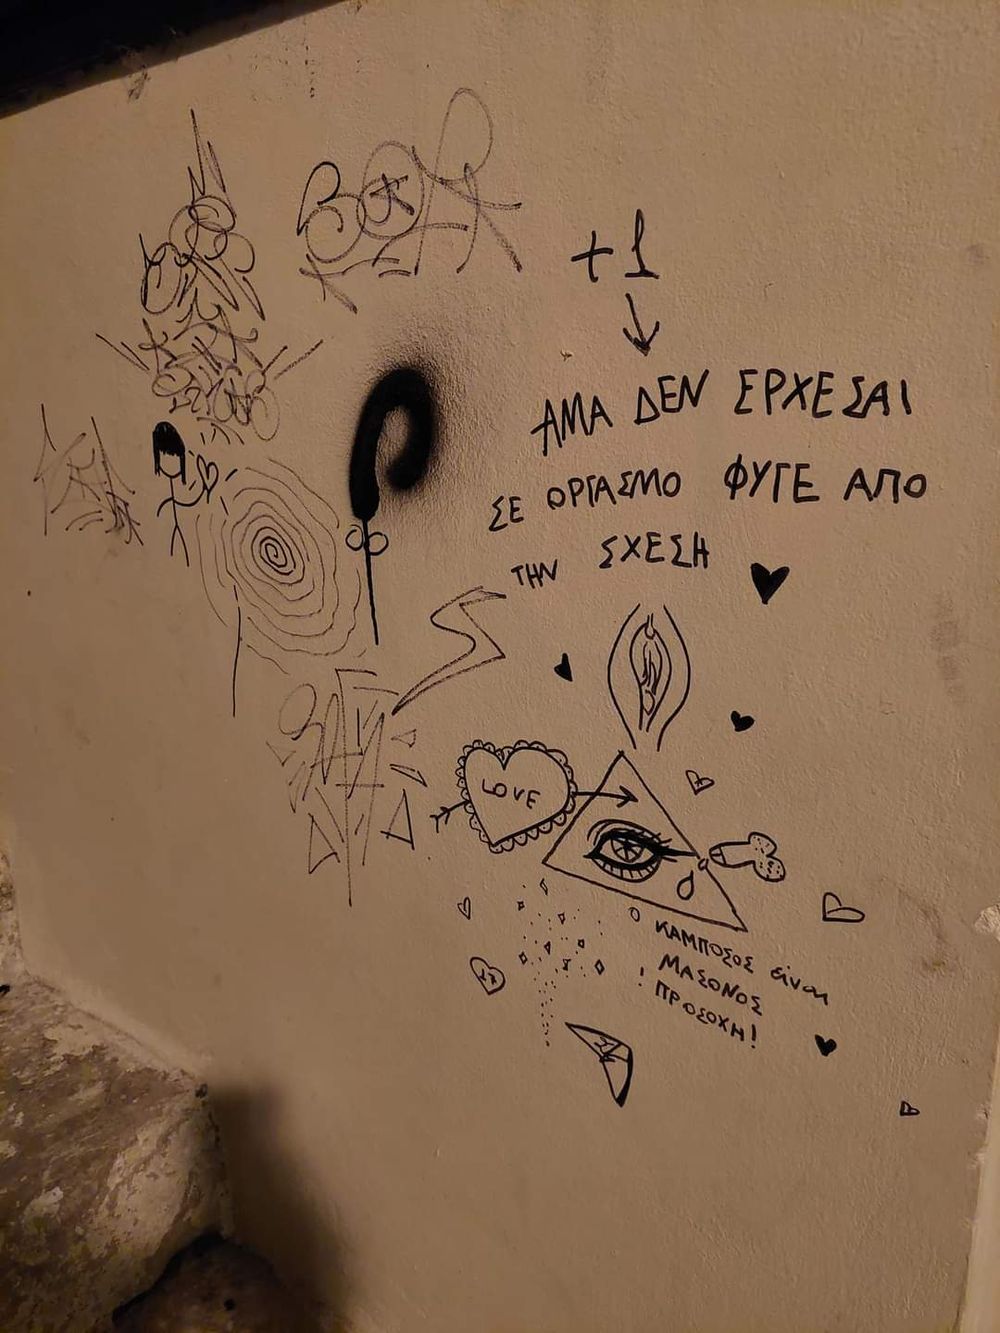 +1
ΑΜΑ ΔΕΝ ΕΡΧΕΣΑΙ
ΣΕ ΟΡΓΑΣΜΟ ΦΥΓΕ ΑΠΟ
ΤΗΝ ΣΧΕΣΗ
LOVE
Ο ΚΑΜΠΟΣΟΣ είναι
ΜΑΣΟΝΟΣ
! ΠΡΟΣΟΧΗ!